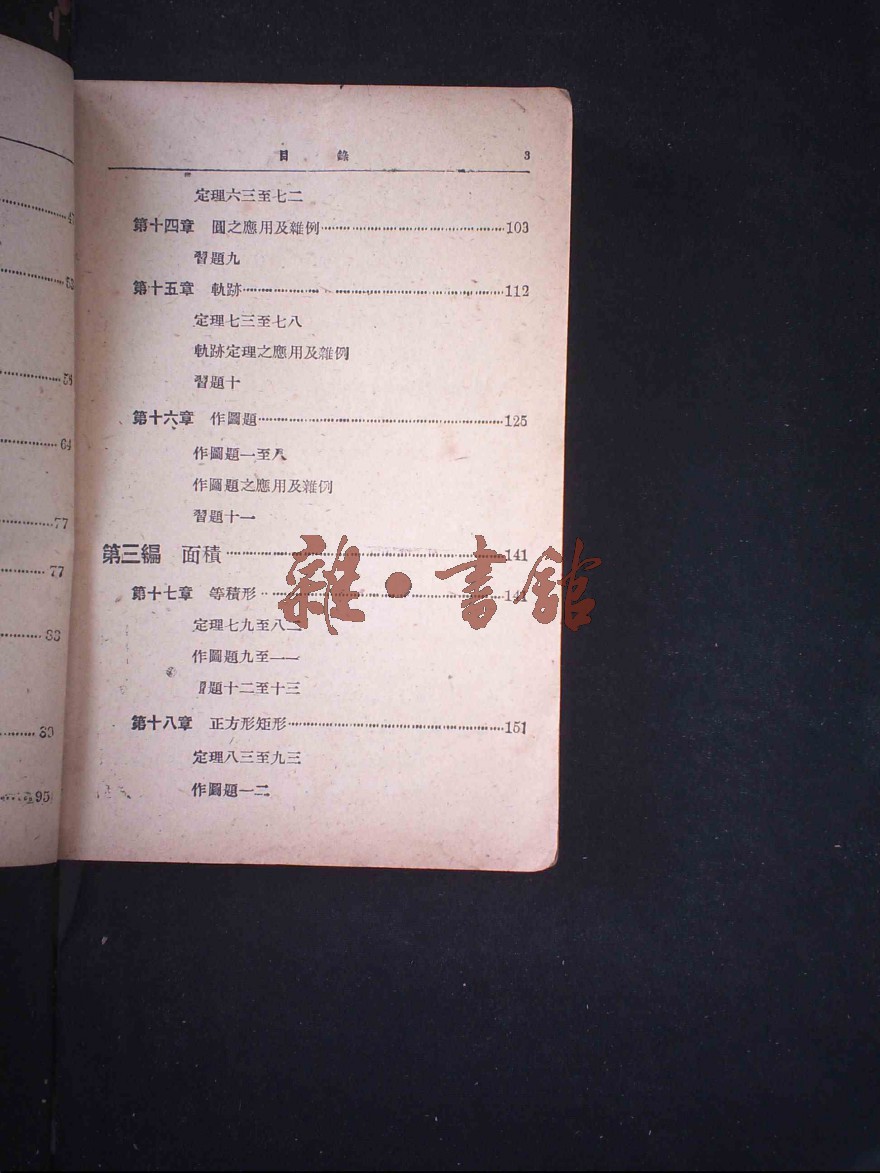 47
53
58
64
77
77
83
89
95
目 錄 3
定理六三至七二
第十四章 圓之應用及雜例 103
習題九
第十五章 軌跡 112
定理七三至七八
軌跡定理之應用及雜例
習題十
第十六章 作圖題 125
作圖題一至八
作圖題之應用及雜例
習題十一
第三編 面積 141
第十七章 等積形 141
定理七九至八二
作圖題九至一一
習題十二至十三
第十八章 正方形矩形 151
定理八三至九三
作圖題一二
雜·書館